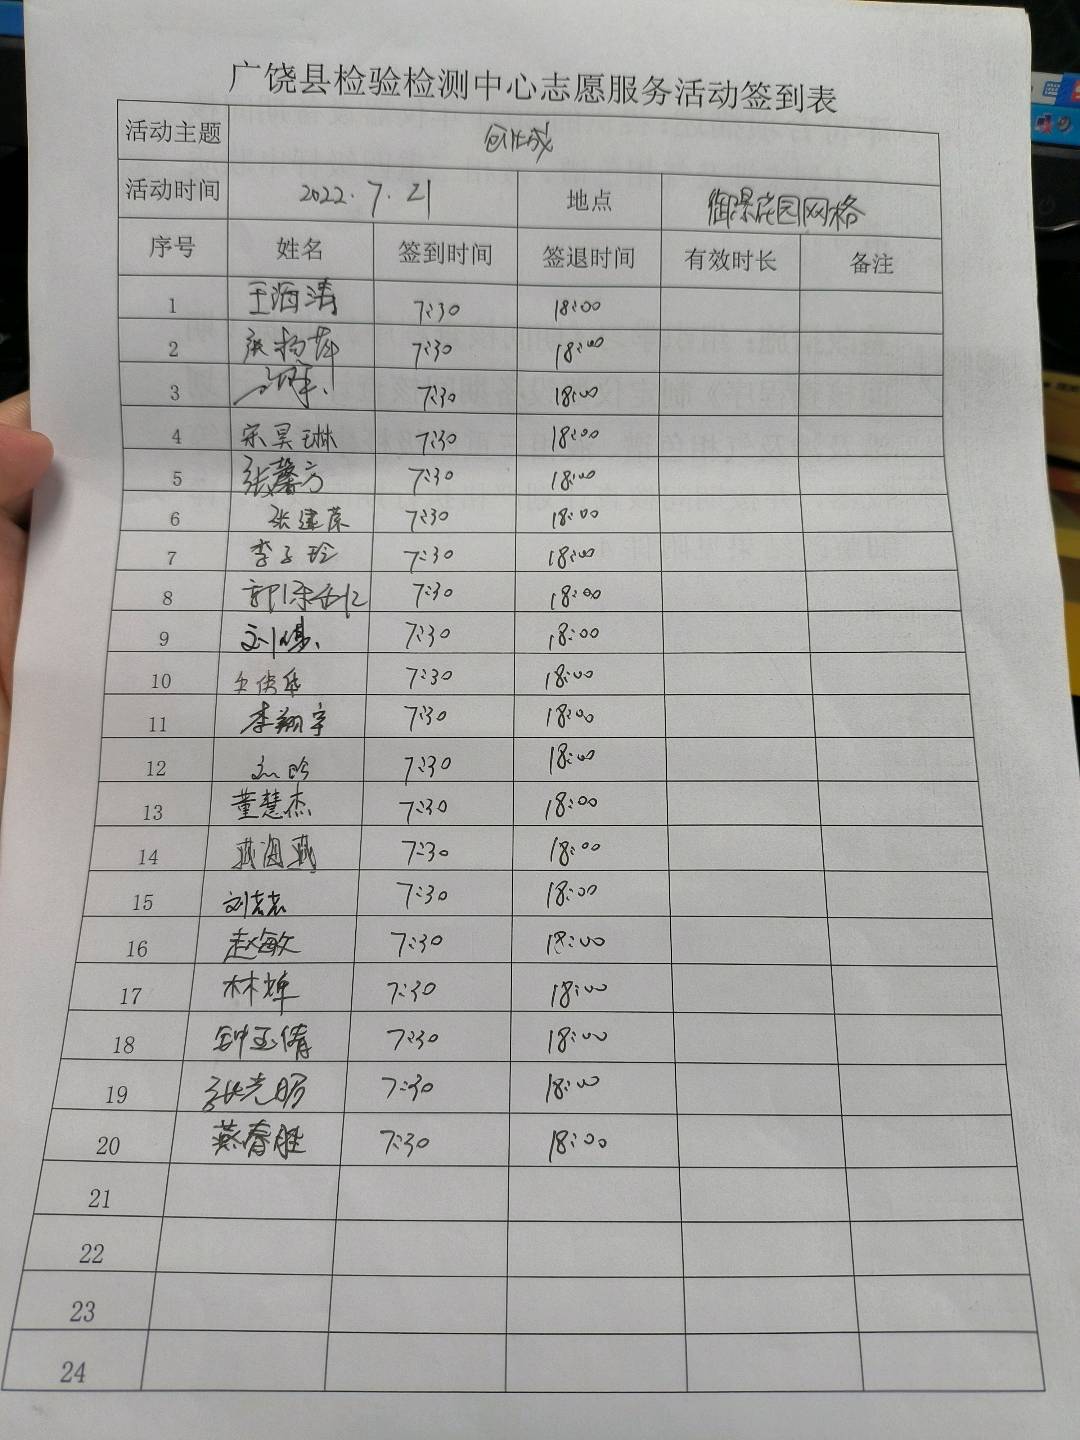 广饶县检验检测中心志愿服务活动签到表
活动主题 创城
活动时间 2022.7.21 地点 御景花园网格
序号 姓名 签到时间 签退时间 有效时长 备注
1 王海涛 7:30 18:00
2 7:30 18:00
3 7:30 18:00
4 宋昊琳 7:30 18:00
5 张馨方 7:30 18:00
6 张建荣 7:30 18:00
7 李子玲 7:30 18:00
8 7:30 18:00
9 7:30 18:00
10 7:30 18:00
11 李翔宇 7:30 18:00
12 7:30 18:00
13 董慧杰 7:30 18:00
14 燕海燕 7:30 18:00
15 刘志志 7:30 18:00
16 赵敏 7:30 18:00
17 林婵 7:30 18:00
18 钟玉倩 7:30 18:00
19 张光明 7:30 18:00
20 燕春胜 7:30 18:00
21
22
23
24